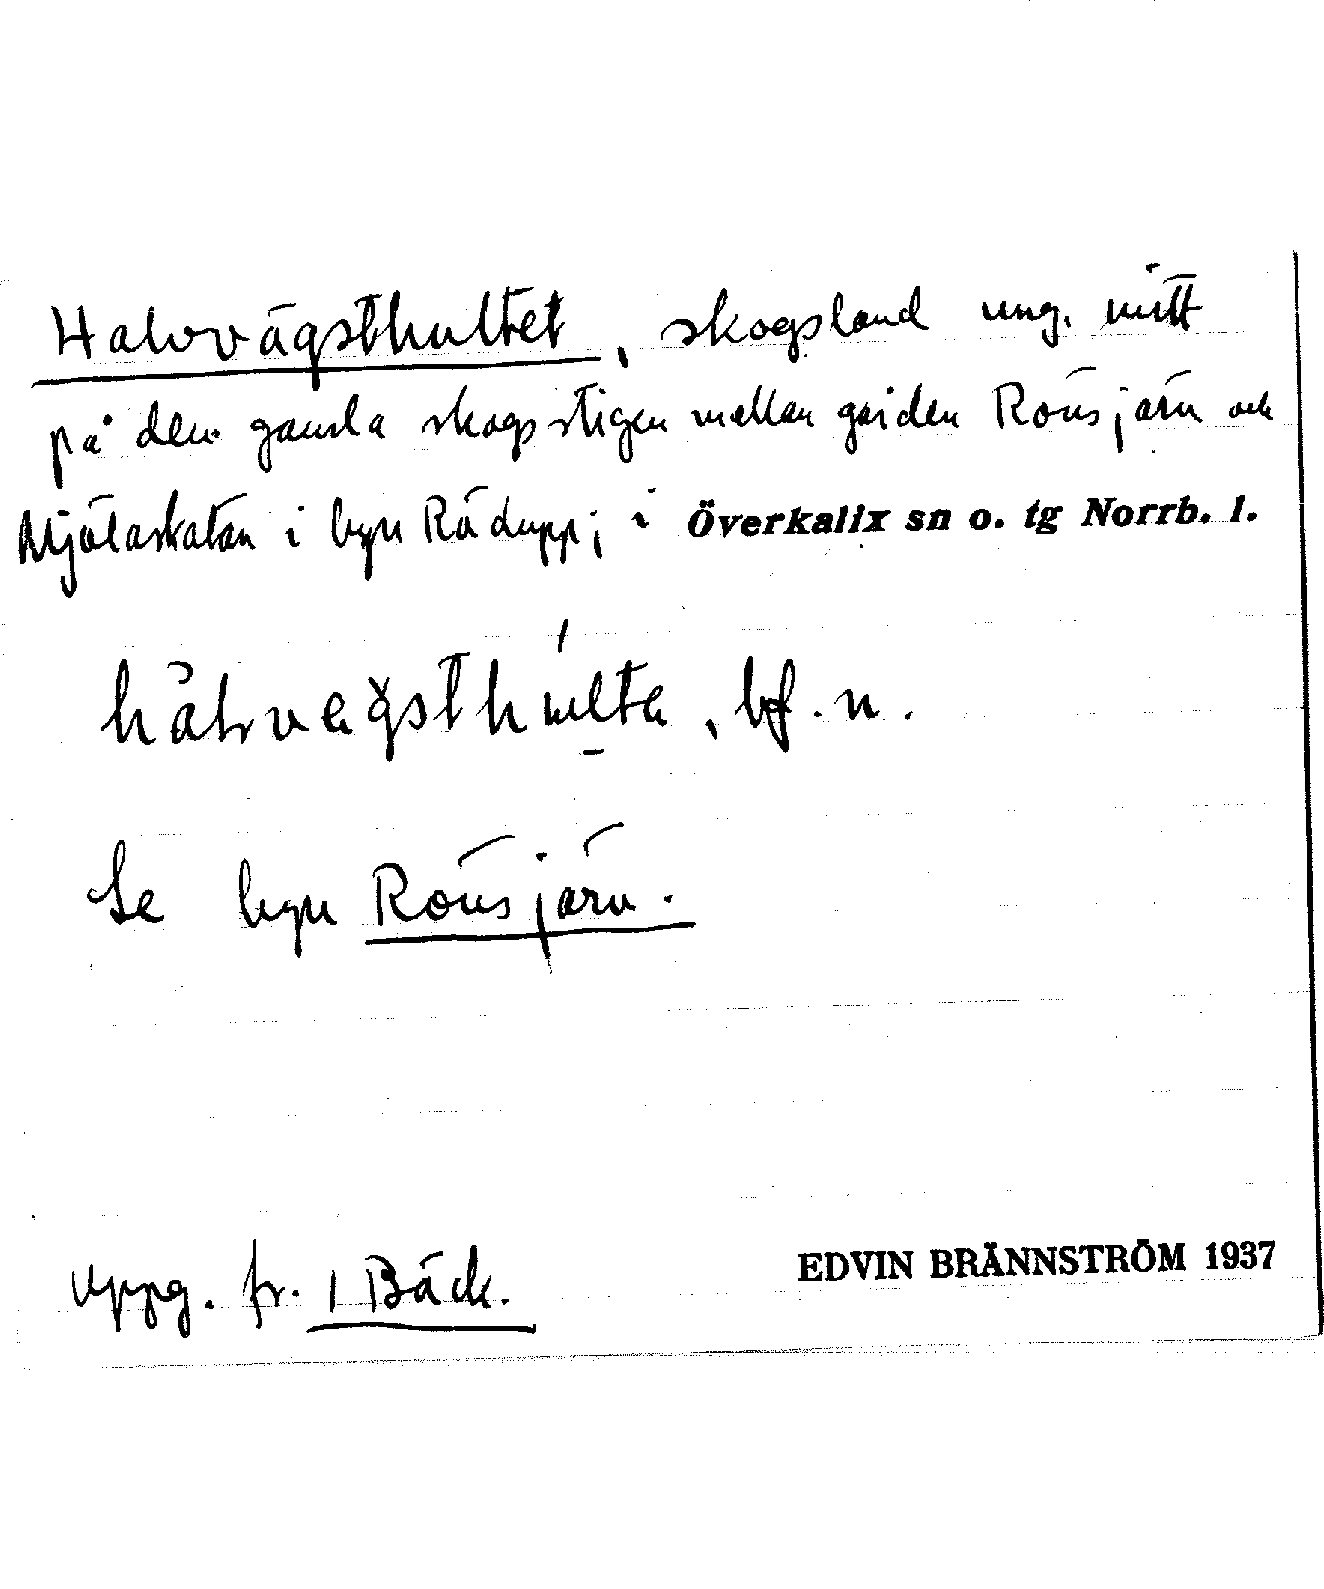 Halvvägsthultet, skogsland ung. mitt
på den gamla skogsstigen mellan gården Rönsjärn och
Mjölaskatan i byn Rödupp; i Överkalix sn o. tg Norrb. l.
bf. n.
Se byn Rönsjärn.
Uppg. fr. 1 Bäck.
EDVIN BRÄNNSTRÖM 1937